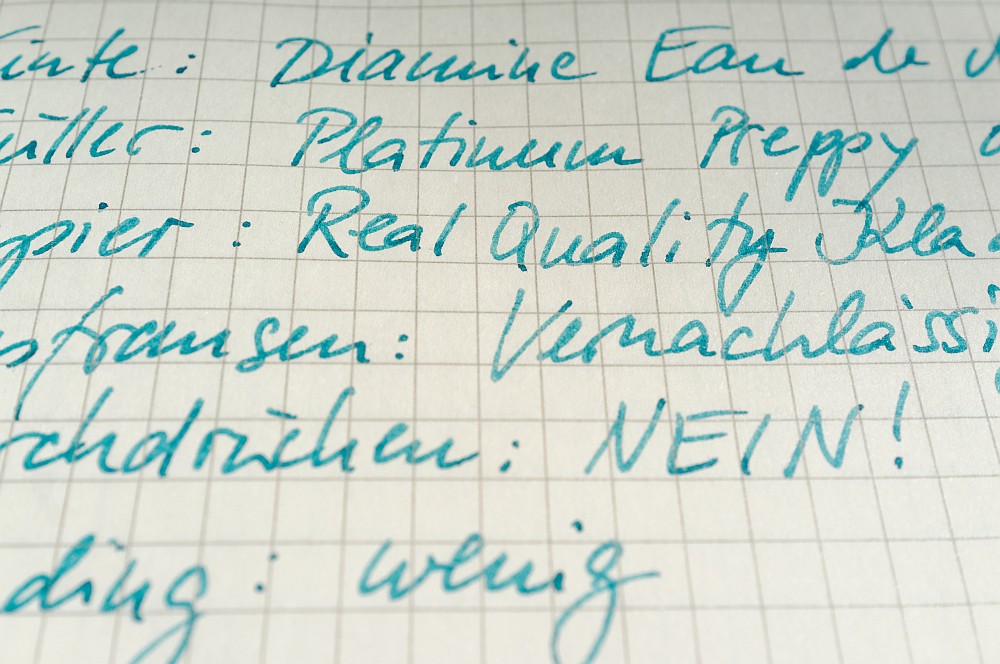 Tinte: Diamine Eau de
Füller: Platinum Preppy
pier: Real Quality Kla
sfransen: Vernachlässi
rchdrücken: NEIN!
ding: wenig